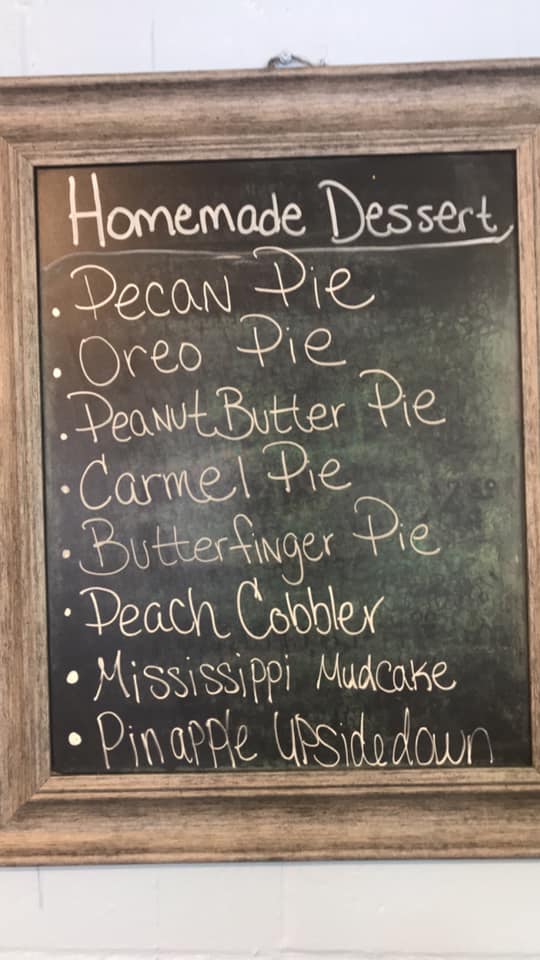 Homemade Dessert
• Pecan Pie
• Oreo Pie
• Peanut Butter Pie
• Carmel Pie
• Butterfinger Pie
• Peach Cobbler
• Mississippi Mudcake
• Pinapple Upsidedown